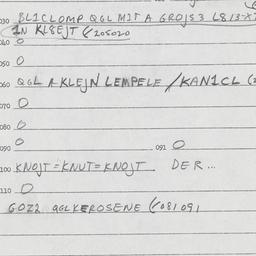 030 BL1CLOMP QGL MIT A GROJS3 L813X
1N KL8EJT (/205020
040 O
050 O
060 QGL A KLEJN LEMPELE / KAN1CL (2
070 O
080 O
090 091 O
100 KNOJT = KNUT = KNOJT DER...
110 O
GOZZ QGLKEROSENE (/081091